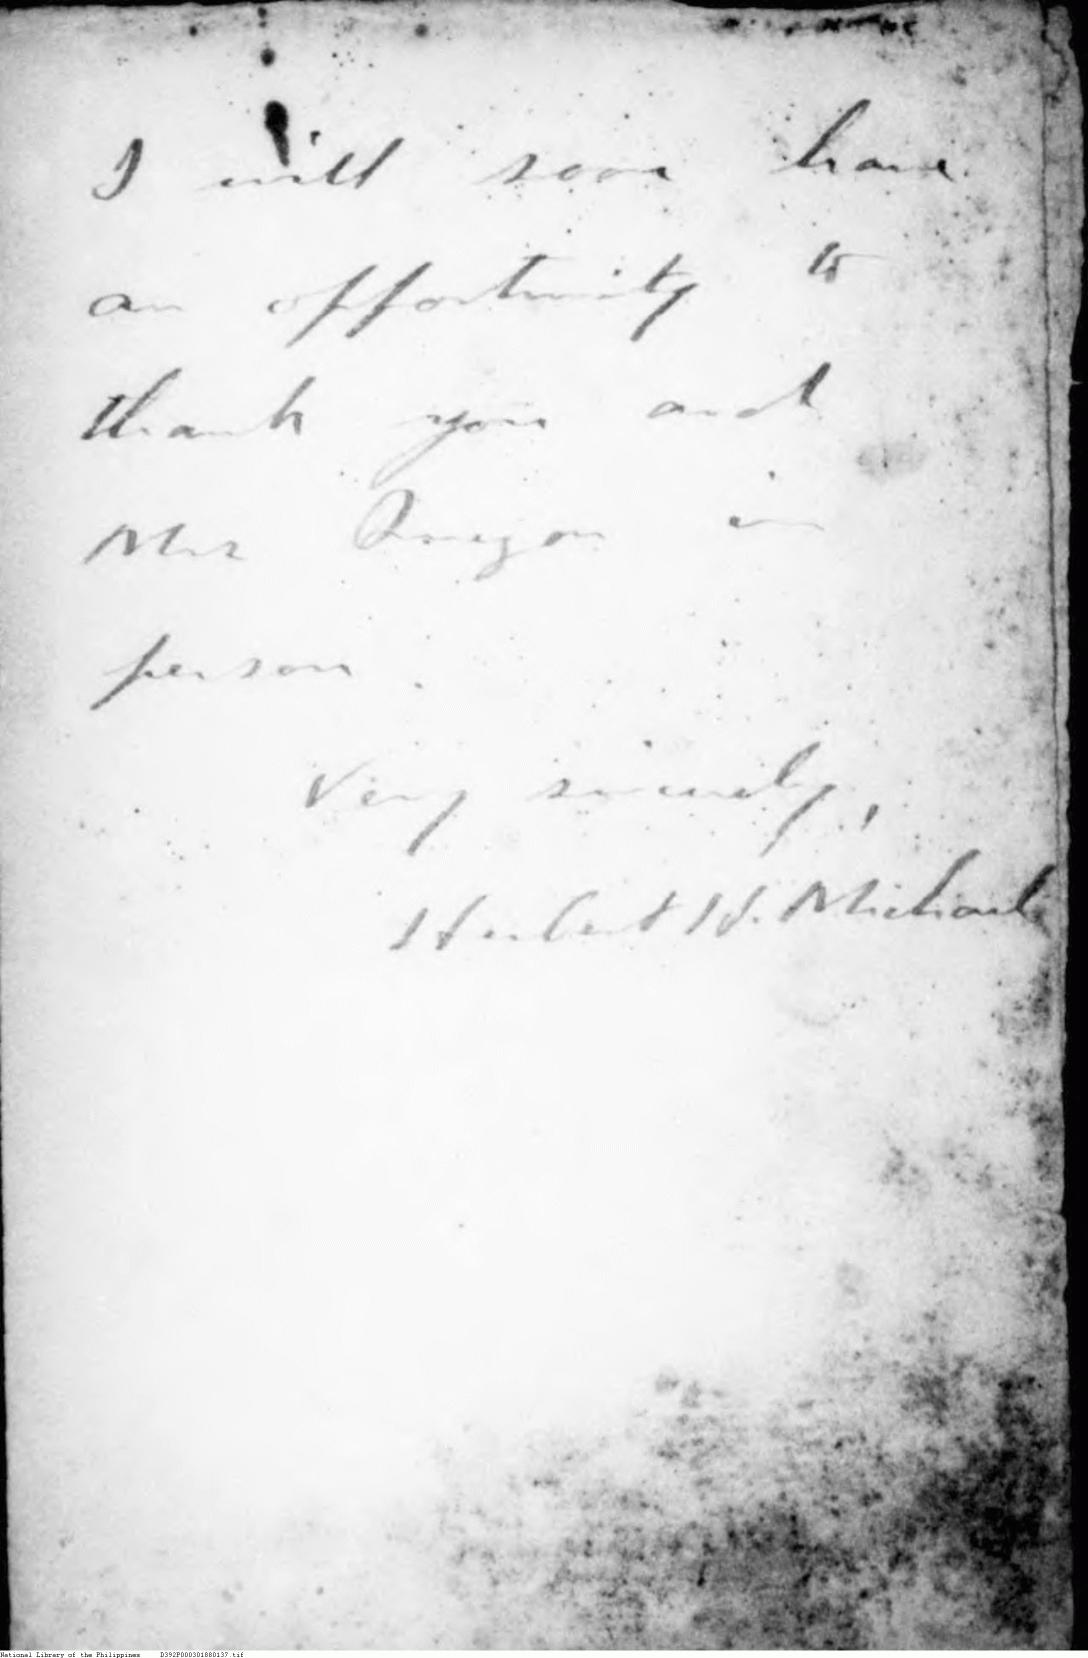 I will soon have
an opportunity to
thank you and
Mrs Quezon in
person.
Very sincerely,
Herbert H. Michael
National Library of the Philippines D392P000301880137.tif